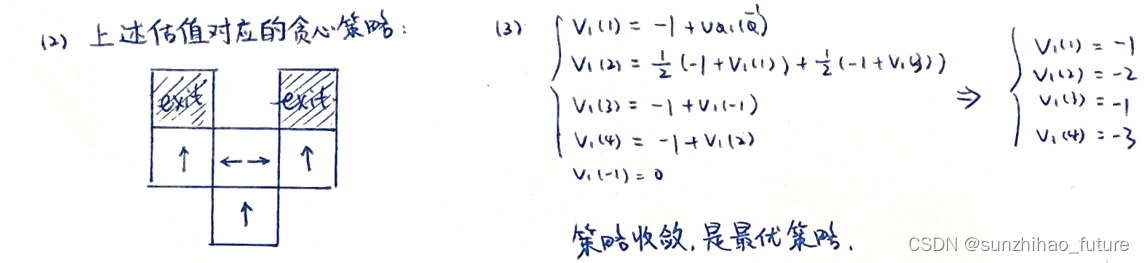 (2) 上述估值对应的贪心策略:
exit exit
↑ ←→ ↑
↑
(3)
V₁(1) = -1 +
V₁(2) = ½(-1+V₁(1)) + ½(-1+V₁(3))
V₁(3) = -1 + V₁(-1)
V₁(4) = -1 + V₁(2)
V₁(-1) = 0
⇒
V₁(1) = -1
V₁(2) = -2
V₁(3) = -1
V₁(4) = -3
策略收敛,是最优策略.
CSDN @sunzhihao_future